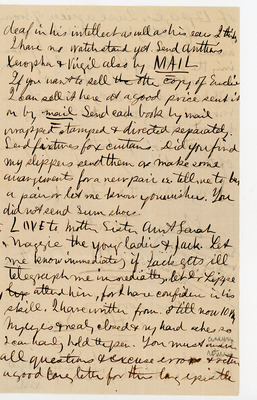 deaf in his intellect as well as his ears I think
I have no watch stand yet. Send Anthons
Xenophon & Virgil also by MAIL
If you want to sell the copy of Euclid
I can sell it here at a good price send it
on by mail Send each book by mail
wrapped stamped & directed separately.
Send fixtures for curtains. Did you find
my slippers send them or make some
arrangement for a new pair or tell me to buy
a pair or let me know your wishes. You
did not send Gum shoes.
LOVE to Mother Sister Aunt Sarah
Maggie the young ladies & Jack. Let
me know immediately if Jack gets ill
telegraph me immediately, let
attend him, for I have confidence in his
skill. I have written from till now 10
My eyes nearly closed & my hand aches so
I can hardly hold the pen. You must
all questions & excuse errors & write
a good long letter for this long epistle